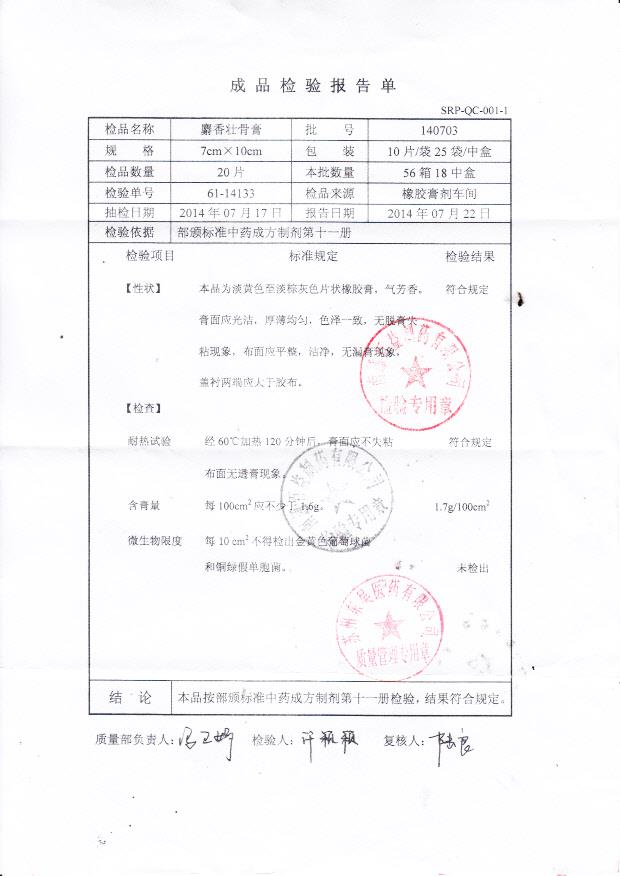 成品检验报告单
SRP-QC-001-1
检品名称 麝香壮骨膏 批号 140703
规格 7cm×10cm 包装 10片/袋 25袋/中盒
检品数量 20片 本批数量 56箱18中盒
检验单号 61-14133 检品来源 橡胶膏剂车间
抽检日期 2014年07月17日 报告日期 2014年07月22日
检验依据 部颁标准中药成方制剂第十一册
检验项目 标准规定 检验结果
【性状】 本品为淡黄色至淡棕灰色片状橡胶膏，气芳香。 符合规定
膏面应光洁，厚薄均匀，色泽一致，无脱膏失
粘现象，布面应平整，洁净，无漏膏现象，
盖衬两端应大于胶布。
检验专用章
【检查】
耐热试验 经60℃加热120分钟后，膏面应不失粘 符合规定
布面无透膏现象。
含膏量 每100cm²应不少于1.6g。 1.7g/100cm²
微生物限度 每10 cm²不得检出金黄色葡萄球菌
和铜绿假单胞菌。 未检出
苏州东吴医药有限公司
质量管理专用章
结论 本品按部颁标准中药成方制剂第十一册检验，结果符合规定。
质量部负责人： 检验人： 复核人：